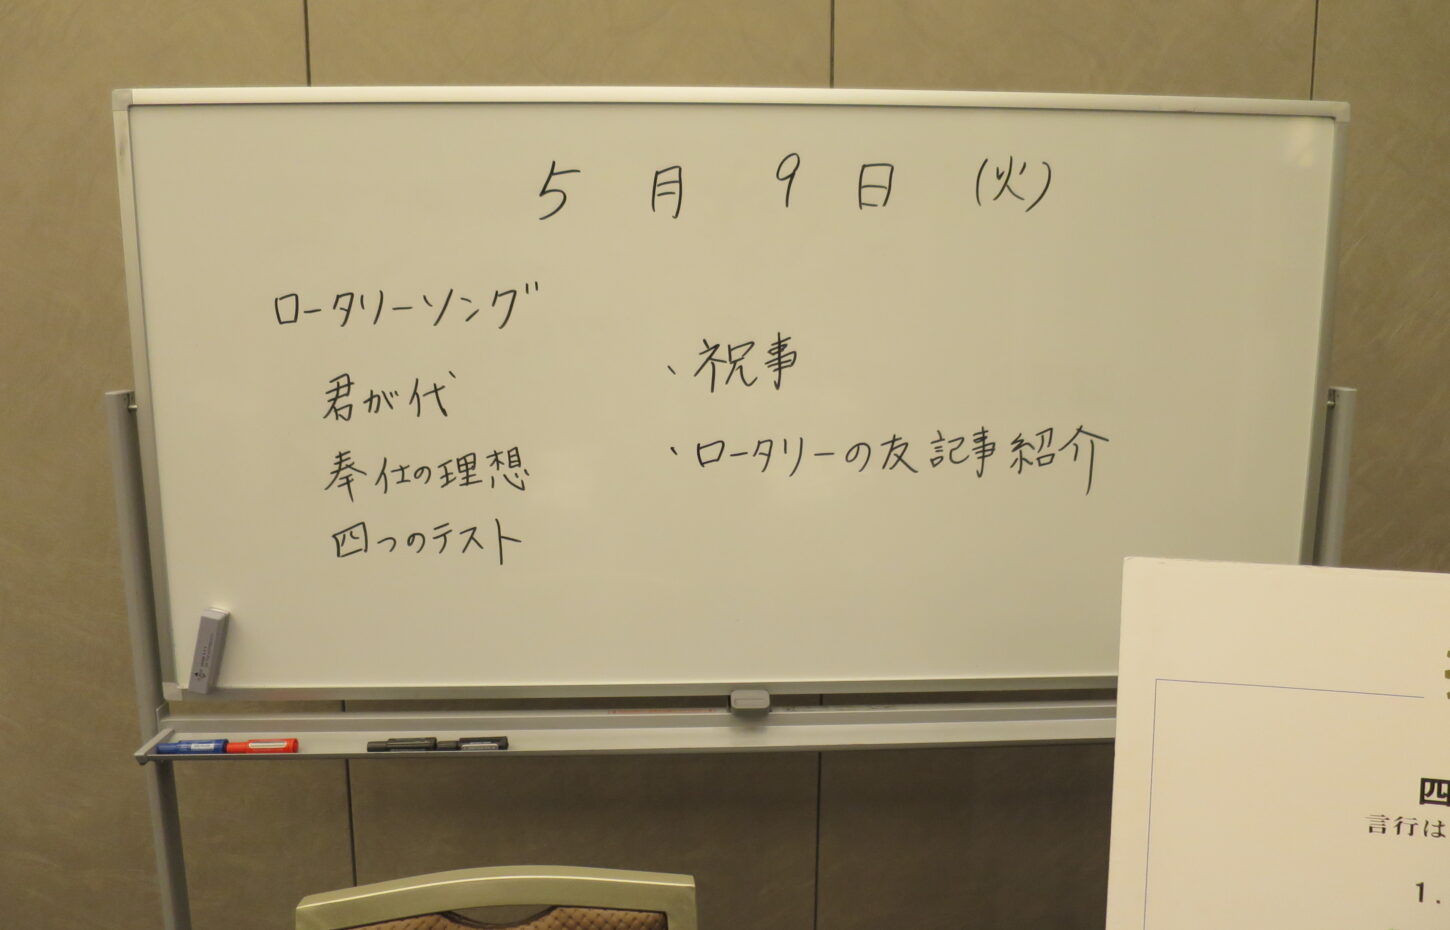 5月9日(火)
ロータリーソング
君が代
奉仕の理想
四つのテスト
・祝事
・ロータリーの友記事紹介
四
言行は
1.